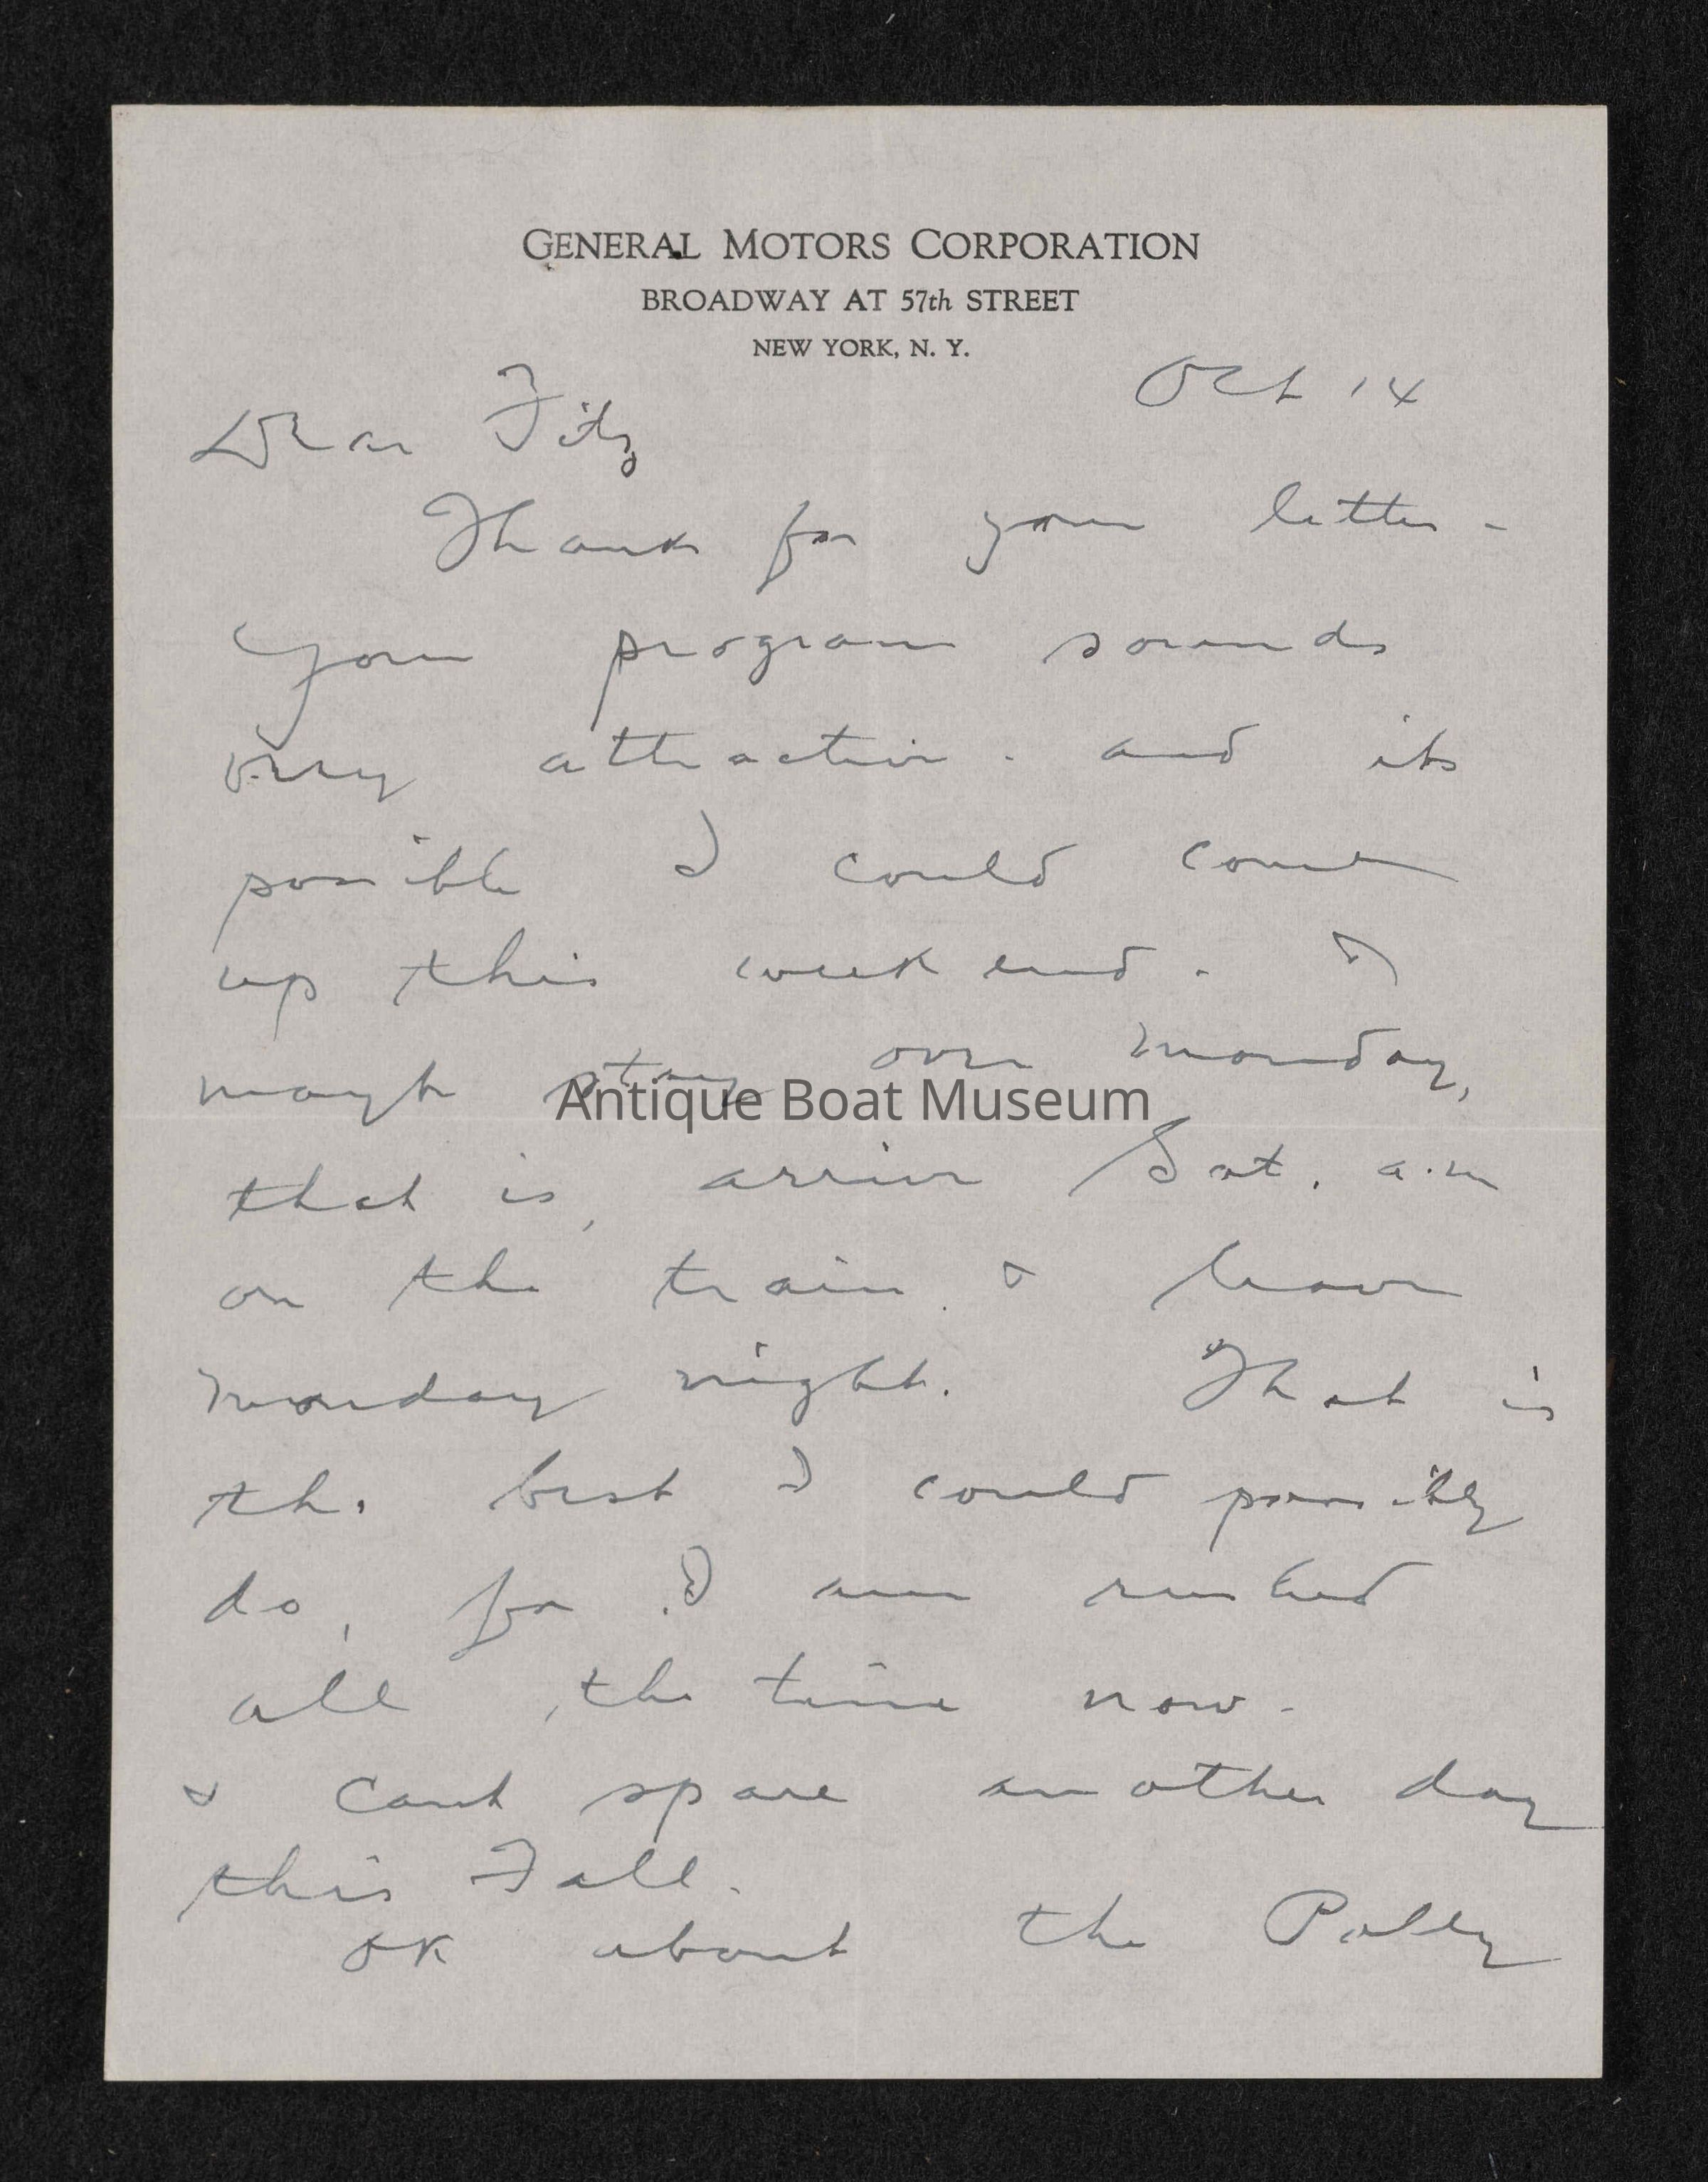 GENERAL MOTORS CORPORATION
BROADWAY AT 57th STREET
NEW YORK, N. Y.
Oct 14
Dear Fitz
Thanks for your letter -
Your program sounds
very attractive. and its
possible I could come
up this week end. &
maybe stay over Monday,
that is, arrive Sat. a.m
on the train. & leave
Monday night. That is
the best I could possibly
do, for I am rushed
all the time now -
& cant spare another day
this Fall.
OK about the Polly
Antique Boat Museum